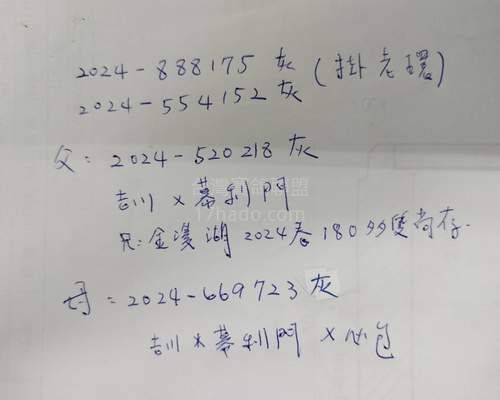 2024-888175 灰 (掛老環)
2024-554152 灰
父: 2024-520218 灰
吉川 x 幕利門
兄: 金溪湖 2024春 180多隻尚存.
母 = 2024-669723 灰
吉川 x 幕利門 x 心包
17hado.com